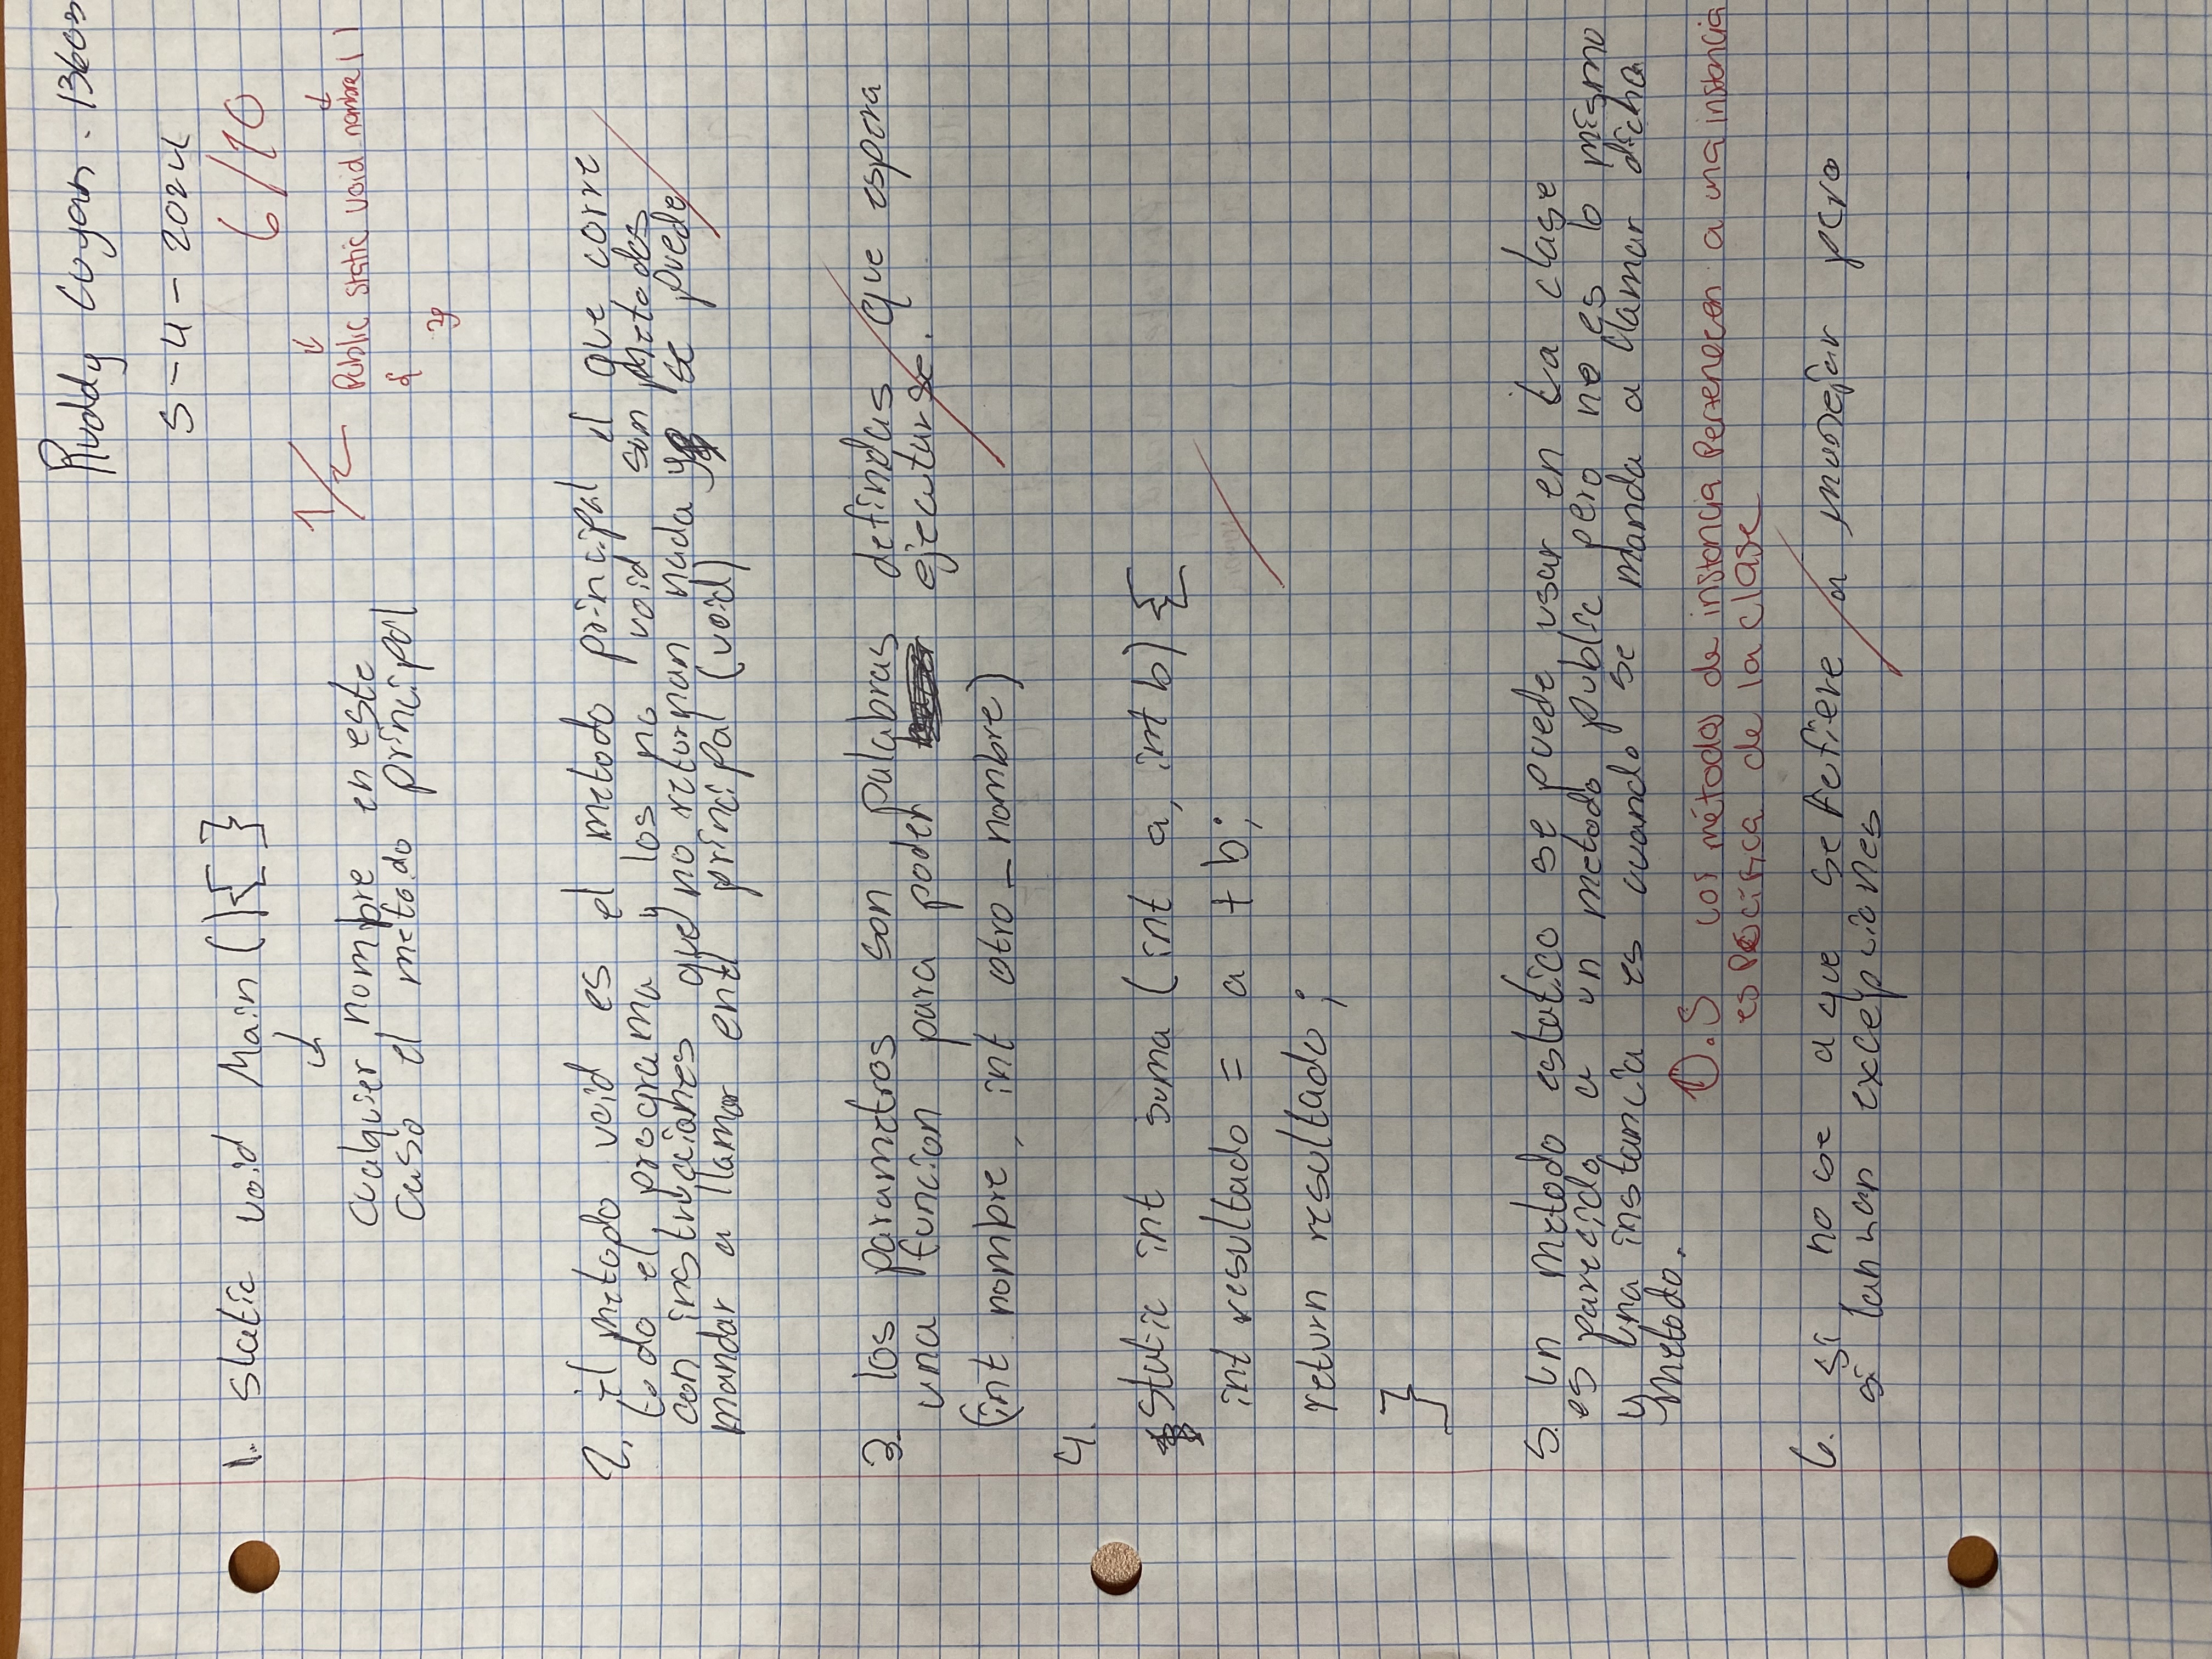 Ruddy Cuyan. 13603
5-4-2024
6/10
1. static void Main (){ }
cualquier nombre en este
caso el metodo principal
1/2
Public static void nombre ( )
{
}
2. El metodo void es el metodo principal el que corre
todo el programa y los no void son metodos
con instrucciones que no returnan nada y se puede
mandar a llamar en el principal (void)
3. los parametros son palabras defindas que espera
una funcion para poder ejecutarse.
(int nombre, int otro_nombre)
4.
static int suma (int a, int b) {
int resultado = a + b;
return resultado;
}
5. Un metodo estatico se puede usar en la clase
es parecido a un metodo public pero no es lo mismo
y una instancia es cuando se manda a llamar dicho
metodo.
0.5 Los métodos de instancia Pertenecen a una instancia
especifica de la clase
6. si no se a que se refiere a manejar pero
si lanzan excepciones